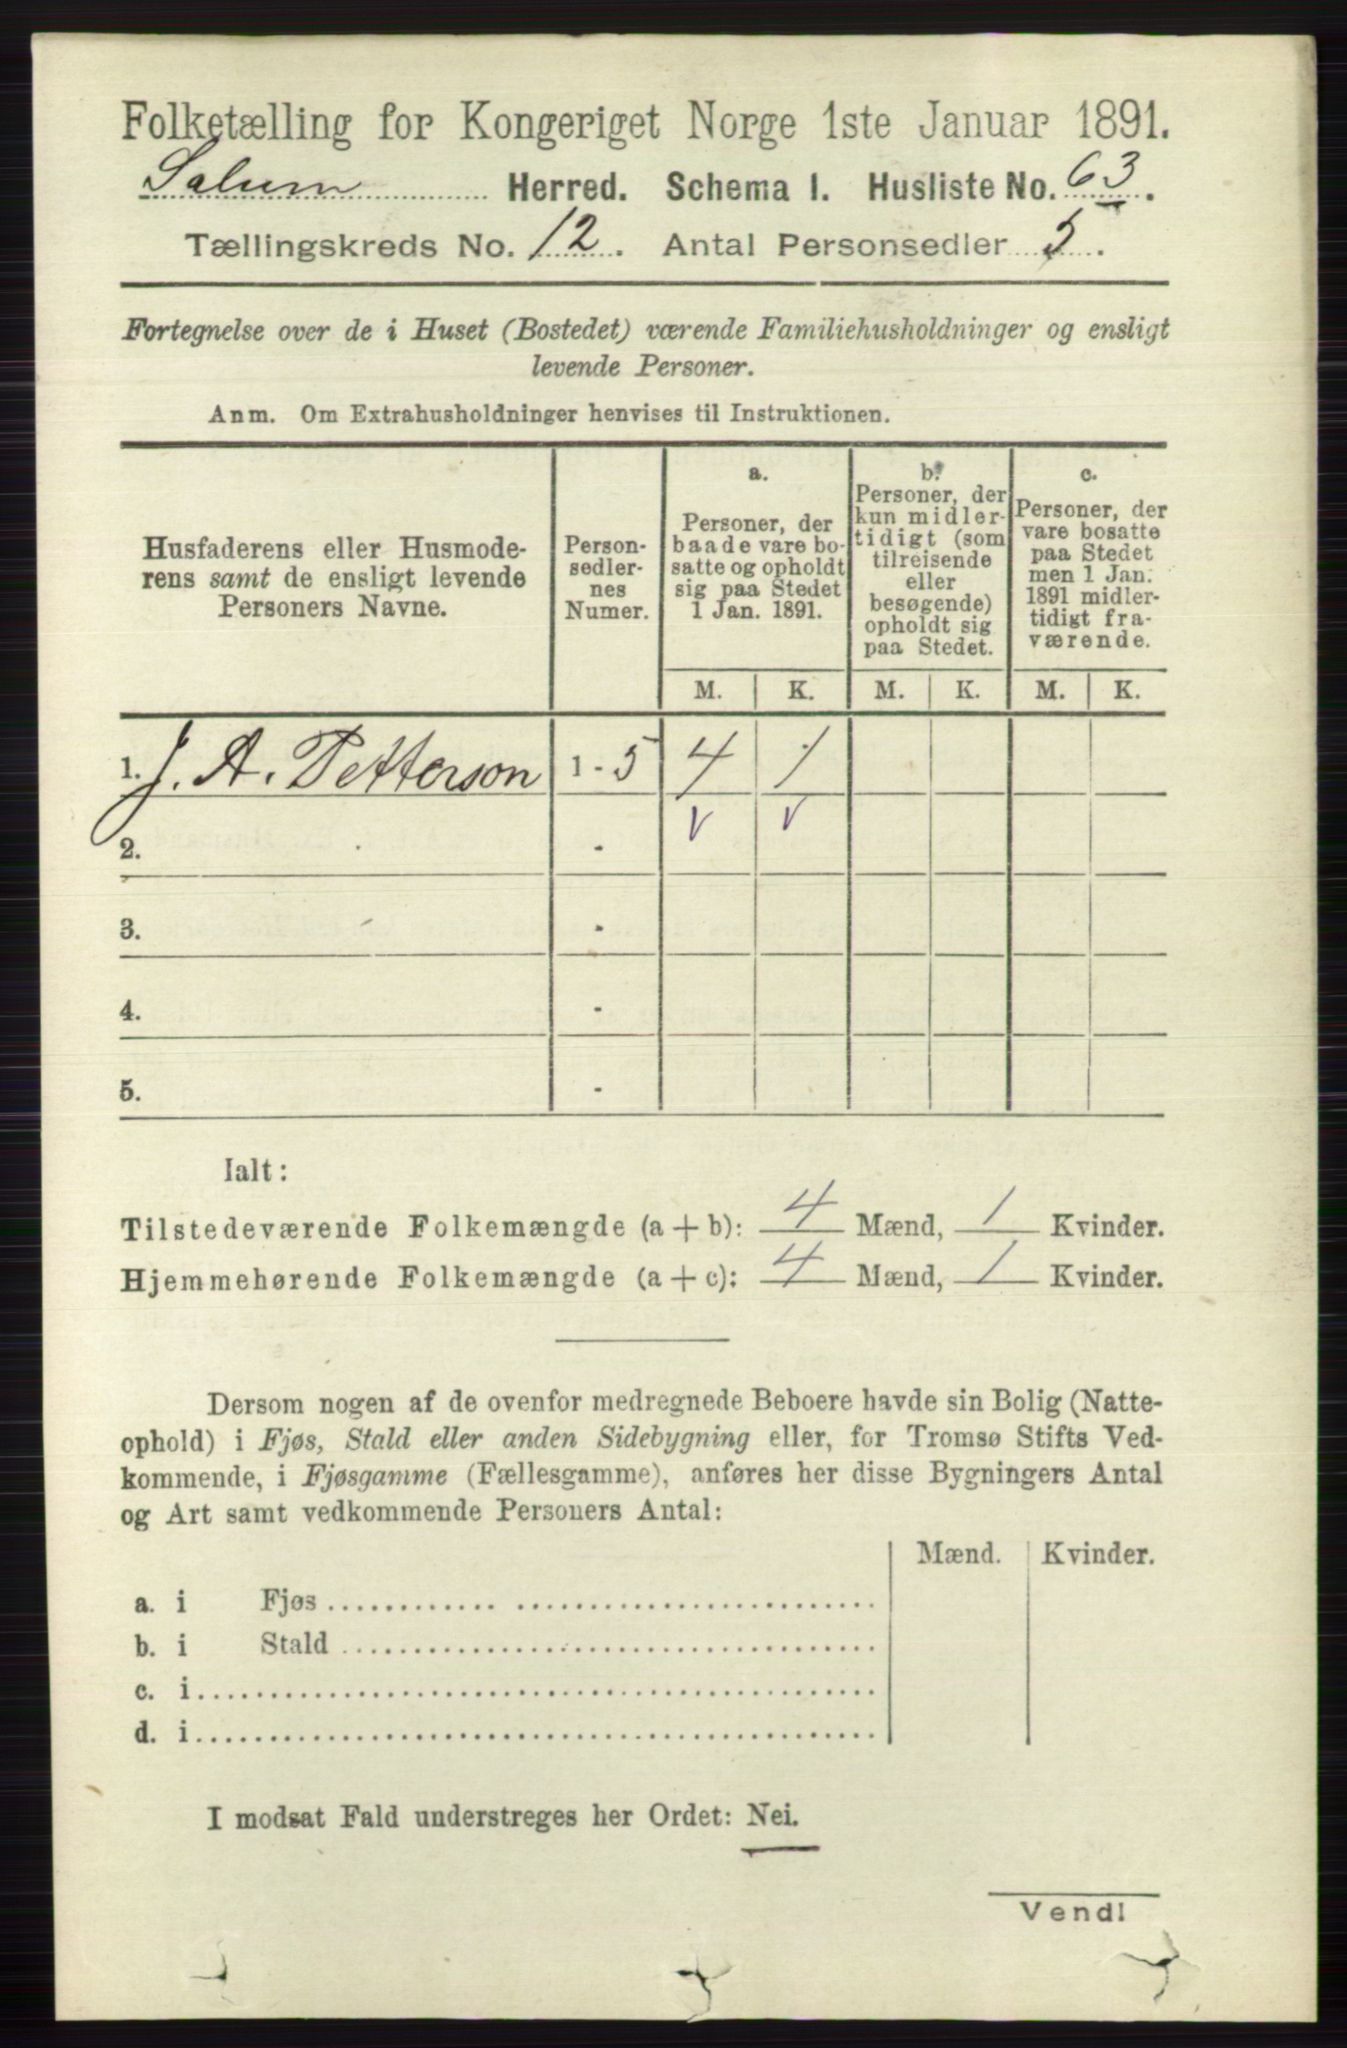 Folketælling for Kongeriget Norge 1ste Januar 1891.
Solum Herred. Schema I. Husliste No. 63.
Tællingskreds No. 12. Antal Personsedler 5.
Fortegnelse over de i Huset (Bostedet) værende Familiehusholdninger og ensligt
levende Personer.
Anm. Om Extrahusholdninger henvises til Instruktionen.
Husfaderens eller Husmode-
rens samt de ensligt levende
Personers Navne.
Person-
sedler-
nes
Numer.
a.
Personer, der
baade vare bo-
satte og opholdt
sig paa Stedet
1 Jan. 1891.
b.
Personer, der
kun midler-
tidigt (som
tilreisende
eller
besøgende)
opholdt sig
paa Stedet.
c.
Personer, der
vare bosatte
paa Stedet
men 1 Jan.
1891 midler-
tidigt fra-
værende.
M. K. M. K. M. K.
1. J. A. Petterson 1 - 5 4 1
v v
2. -
3. -
4. -
5. -
Ialt:
Tilstedeværende Folkemængde (a + b): 4 Mænd, 1 Kvinder.
Hjemmehørende Folkemængde (a + c): 4 Mænd, 1 Kvinder.
Dersom nogen af de ovenfor medregnede Beboere havde sin Bolig (Natte-
ophold) i Fjøs, Stald eller anden Sidebygning eller, for Tromsø Stifts Ved-
kommende, i Fjøsgamme (Fællesgamme), anføres her disse Bygningers Antal
og Art samt vedkommende Personers Antal:
Mænd. Kvinder.
a. i Fjøs
b. i Stald
c. i
d. i
I modsat Fald understreges her Ordet: Nei.
Vend!